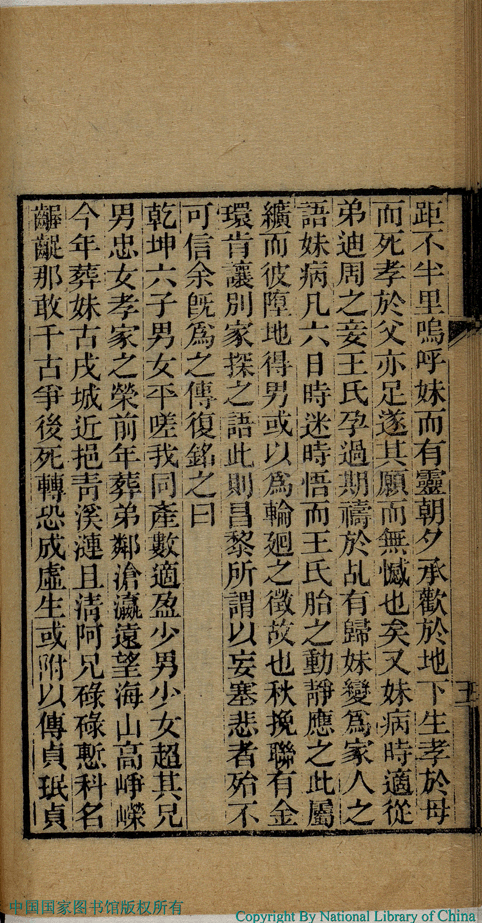 距不半里嗚呼妹而有靈朝夕承歡於地下生孝於母
而死孝於父亦足遂其願而無憾也矣又妹病時適從
弟迪周之妾王氏孕過期禱於乩有歸妹變爲家人之
語妹病凡六日時迷時悟而王氏胎之動靜應之此屬
纊而彼墮地得男或以爲輪廻之徵故也秋挽聯有金
環肯讓別家探之語此則昌黎所謂以妄塞悲者殆不
可信余旣爲之傳復銘之曰
乾坤六子男女平嗟我同產數適盈少男少女超其兄
男忠女孝家之榮前年葬弟鄰滄瀛遠望海山高崢嶸
今年葬妹古戌城近挹靑溪漣且淸阿兄碌碌慙科名
齷齪那敢千古爭後死轉恐成虛生或附以傳貞珉貞
中国国家图书馆版权所有
Copyright By National Library of China